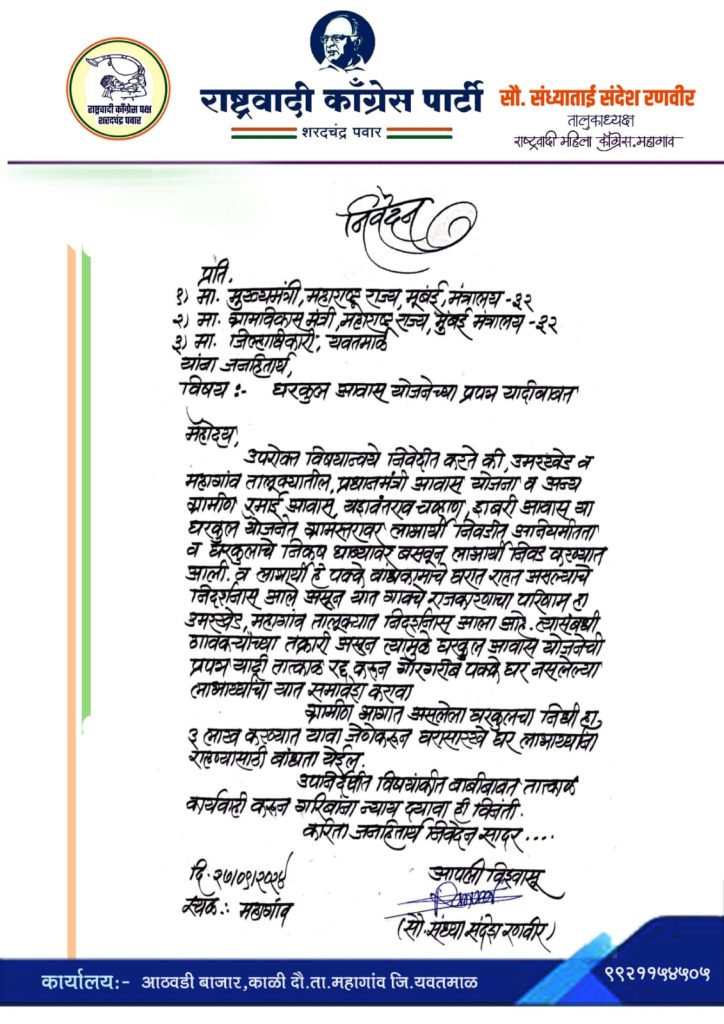 राष्ट्रवादी काँग्रेस पक्ष
शरदचंद्र पवार
राष्ट्रवादी काँग्रेस पार्टी
शरदचंद्र पवार
सौ. संध्याताई संदेश रणवीर
तालुकाध्यक्ष
राष्ट्रवादी महिला काँग्रेस.महागाव
निवेदन
प्रति.
१) मा. मुख्यमंत्री, महाराष्ट्र राज्य, मूंबई, मंत्रालय -३२
२) मा. ग्रामविकास मंत्री, महाराष्ट्र राज्य, मुंबई मंत्रालय -३२
३) मा. जिल्हाधिकारी, यवतमाळ
यांना जनहितार्थ,
विषय :- घरकुल आवास योजनेच्या प्रपत्र यादीबाबत
महोदय,
उपरोक्त विषयान्वये निवेदीत करते की, उमरखेड व
महागांव तालूक्यातील, प्रधानमंत्री आवास योजना व अन्य
ग्रामीण रमाई आवास, यशवंतराव चव्हाण, शबरी आवास या
घरकुल योजनेत ग्रामस्तरावर लाभार्थी निवडीत अनियमीतता
व घरकुलाचे निकष धाब्यावर बसवून लाभार्थी निवड करण्यात
आली. व लाभार्थी हे पक्के बांधकामाचे घरात राहत असल्याचे
निदर्शनास आले असून यात गावचे राजकारणाचा परिणाम हा
उमरखेड, महागांव तालूक्यात निदर्शनास आला आहे. त्यासंबंधी
गावकऱ्यांच्या तक्रारी असून त्यामुळे घरकुल आवास योजनेची
प्रपत्र यादी तात्काळ रद्द करून गोरगरीब पक्के घर नसलेल्या
लाभार्थ्यांचा यात समावेश करावा
ग्रामीण भागात असलेला घरकुलचा निधी हा,
३ लाख करण्यात यावा जेणेकरून घरासारखे घर लाभार्थ्यांना
राहण्यासाठी बांधता येईल.
उपनिर्देषीत विषयांकीत बाबीबाबत तात्काळ
कार्यवाही करून गरिबांना न्याय द्यावा ही विनंती.
करिता जनहितार्थ निवेदन सादर ....
दि. २७/०९/२०२४
स्थळ.: महागांव
आपली विश्वासू
(सौ. संध्या संदेश रणवीर)
कार्यालय:- आठवडी बाजार,काळी दौ.ता.महागांव जि.यवतमाळ
९९२११५४५०५